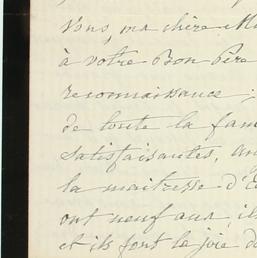 Vous, ma chère M
à votre Bon Père
reconnaissance;
de toute la fam
satisfaisantes, an
la maitresse d'é
ont neuf ans, il
et ils font la joie d